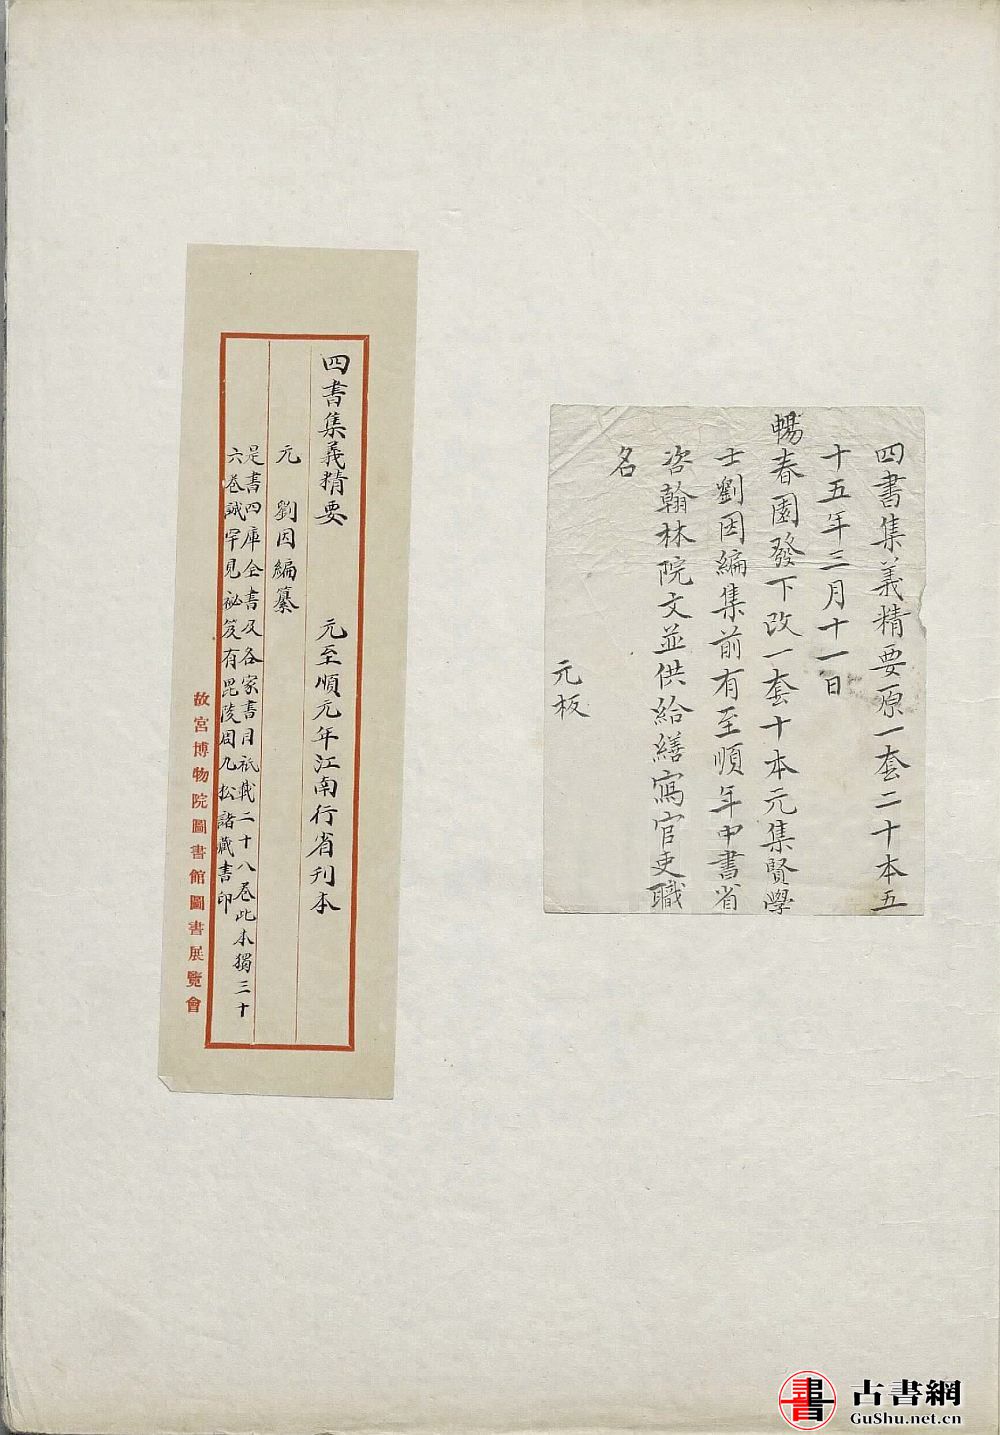 四書集義精要原一套二十本五
十五年三月十一日
暢春園發下改一套十本元集賢學
士劉因編集前有至順年中書省
咨翰林院文並供給繕寫官吏職
名
元板
四書集義精要 元至順元年江南行省刊本
元 劉因編纂
是書四庫全書及各家書目祇載二十八卷此本獨三十
六卷誠罕見祕笈有毘陵周九松諸藏書印
故宮博物院圖書館圖書展覽會
古書網
GuShu.net.cn